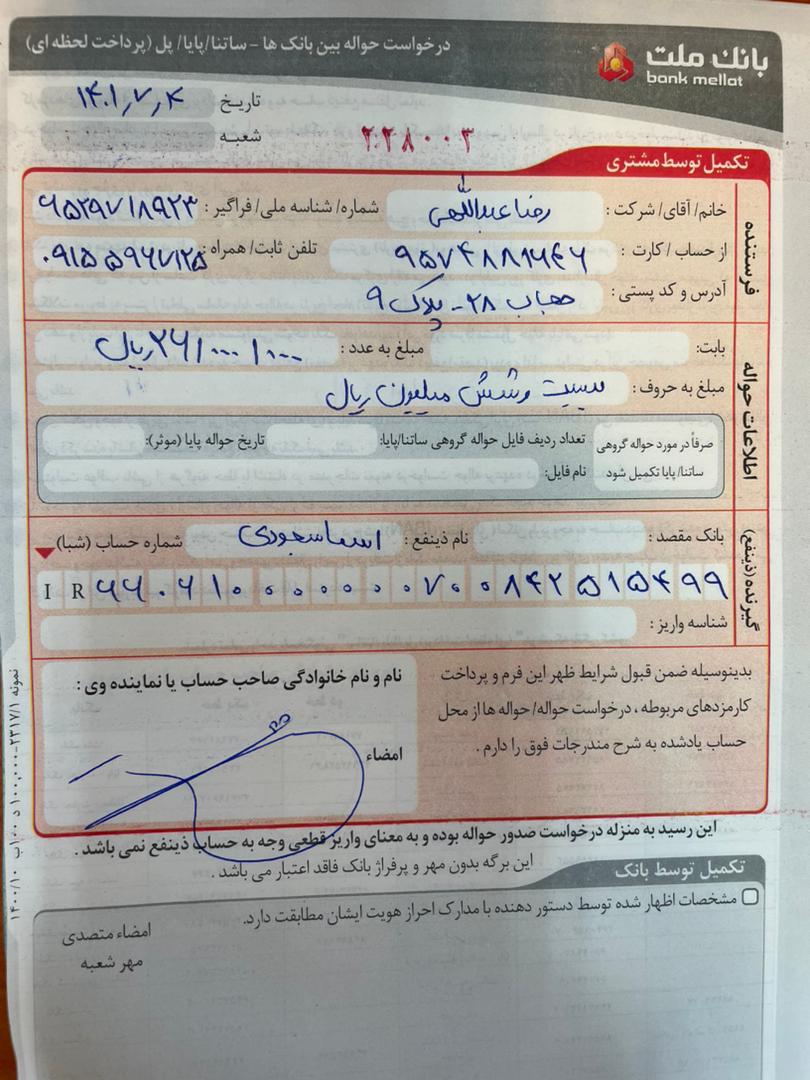 بانک ملت
bank mellat
درخواست حواله بین بانک ها - ساتنا/پایا/پل (پرداخت لحظه ای)
تاریخ ۱۴۰۱٫۷٫۴
شعبه
۲۲۸۰۰۳
تکمیل توسط مشتری
فرستنده
خانم/آقای/شرکت: رضا عبداللهی شماره/شناسه ملی/فراگیر: ۶۵۲۹۷۱۸۹۲۳
از حساب/کارت: ۹۵۷۴۸۸۱۶۴۶ تلفن ثابت/همراه: ۰۹۱۵۵۹۶۷۱۲۵
آدرس و کد پستی: ۲۸- پلاک ۹
اطلاعات حواله
بابت: مبلغ به عدد: ۲۶/۰۰۰/۰۰۰ ریال
مبلغ به حروف: بیست و شش میلیون ریال
صرفاً در مورد حواله گروهی ساتنا/پایا تکمیل شود
تعداد ردیف فایل حواله گروهی ساتنا/پایا: تاریخ حواله پایا (موثر):
نام فایل:
گیرنده (ذینفع)
بانک مقصد: نام ذینفع: اسما سجودی شماره حساب (شبا)
IR ۶۶۰۶۱۰۰۰۰۰۰۰۷۰۰۸۴۲۵۱۵۴۹۹
شناسه واریز:
بدینوسیله ضمن قبول شرایط ظهر این فرم و پرداخت
کارمزدهای مربوطه، درخواست حواله/حواله ها از محل
حساب یادشده به شرح مندرجات فوق را دارم.
نام و نام خانوادگی صاحب حساب یا نماینده وی:
امضاء
این رسید به منزله درخواست صدور حواله بوده و به معنای واریز قطعی وجه به حساب ذینفع نمی باشد.
این برگه بدون مهر و پرفراژ بانک فاقد اعتبار می باشد.
تکمیل توسط بانک
مشخصات اظهار شده توسط دستور دهنده با مدارک احراز هویت ایشان مطابقت دارد.
امضاء متصدی
مهر شعبه
نمونه ۲۳۱۷/۱-۱۰۰,۰۰۰ د ۱۰۰ب ۱۴۰۰/۱۰